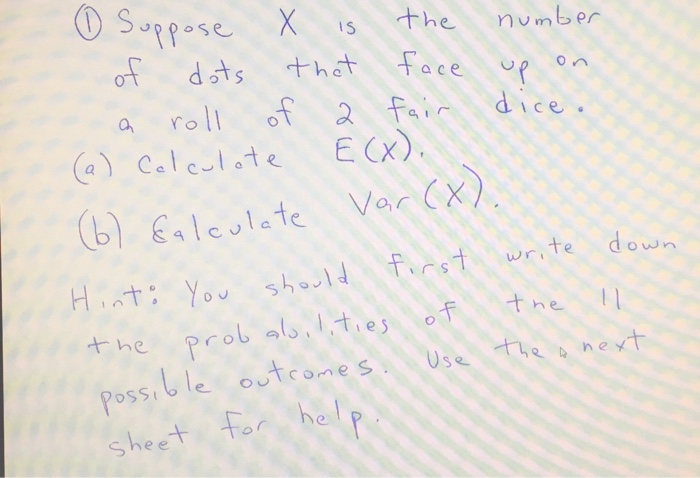 ① Suppose X is the number
of dots that face up on
a roll of 2 fair dice.
(a) Calculate E(X).
(b) Calculate Var(X).
Hint: You should first write down
the probabilities of the 11
possible outcomes. Use the next
sheet for help.